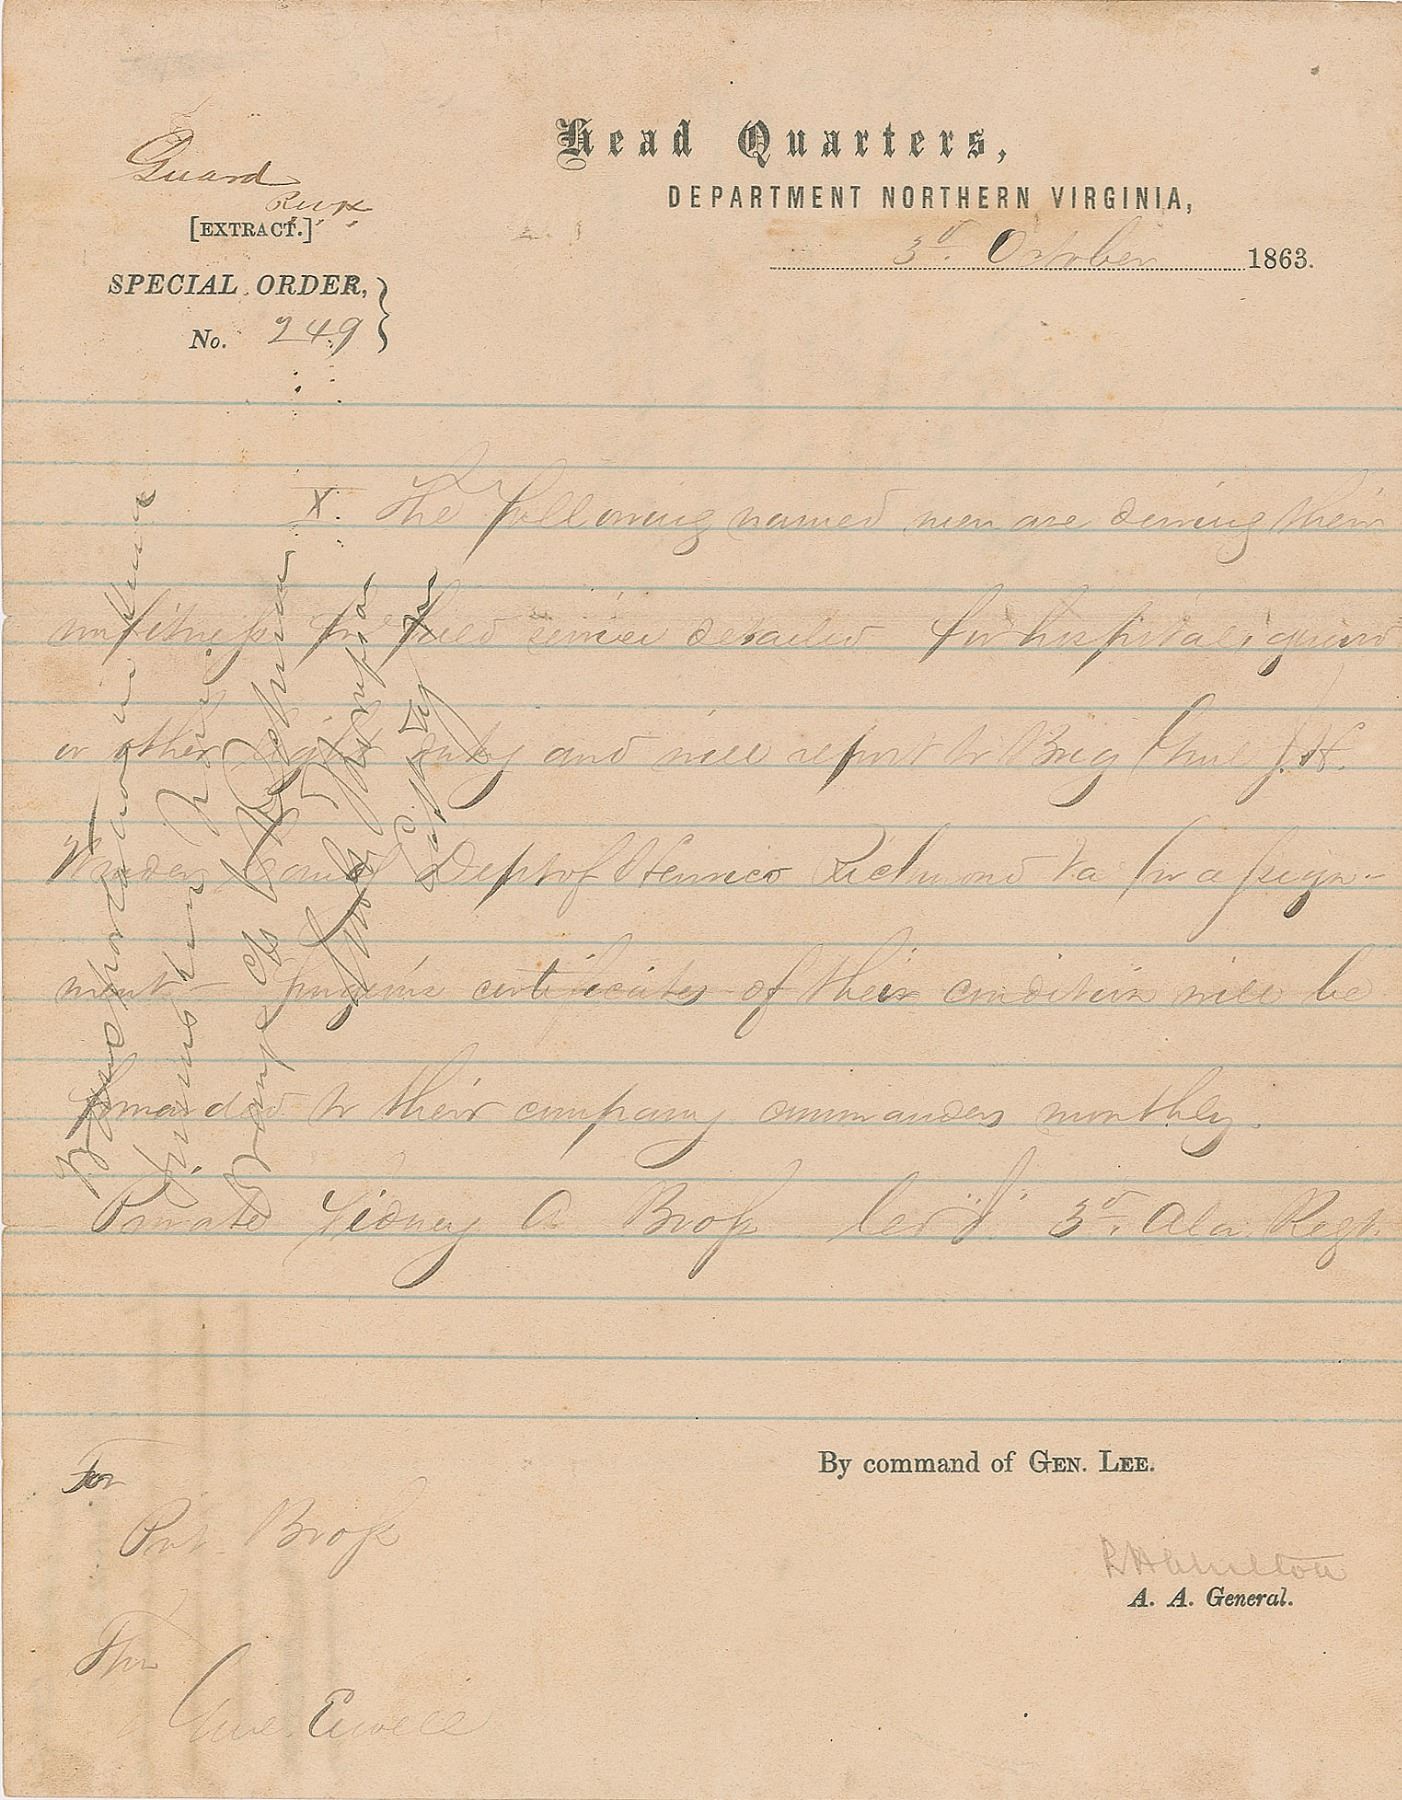 Guard
[EXTRACT.]
SPECIAL ORDER,
No. 249
Head Quarters,
DEPARTMENT NORTHERN VIRGINIA,
3d. October 1863.
X. The following named men are during their
unfitness for field service detailed for hospital, guard
or other light duty and will report to Brig Genl J. H.
Winder Comdg Dept of Henrico Richmond Va for assign-
ment – Surgeons certificates of their condition will be
forwarded to their company commanders monthly.
Private Sidney A Bross Co "I" 3d. Ala. Regt.
Transportation in kind
furnished from
Orange CH to Richmond
By command of GEN. LEE.
A. A. General.
For
Pvt. Bross
Thro
Genl. Ewell